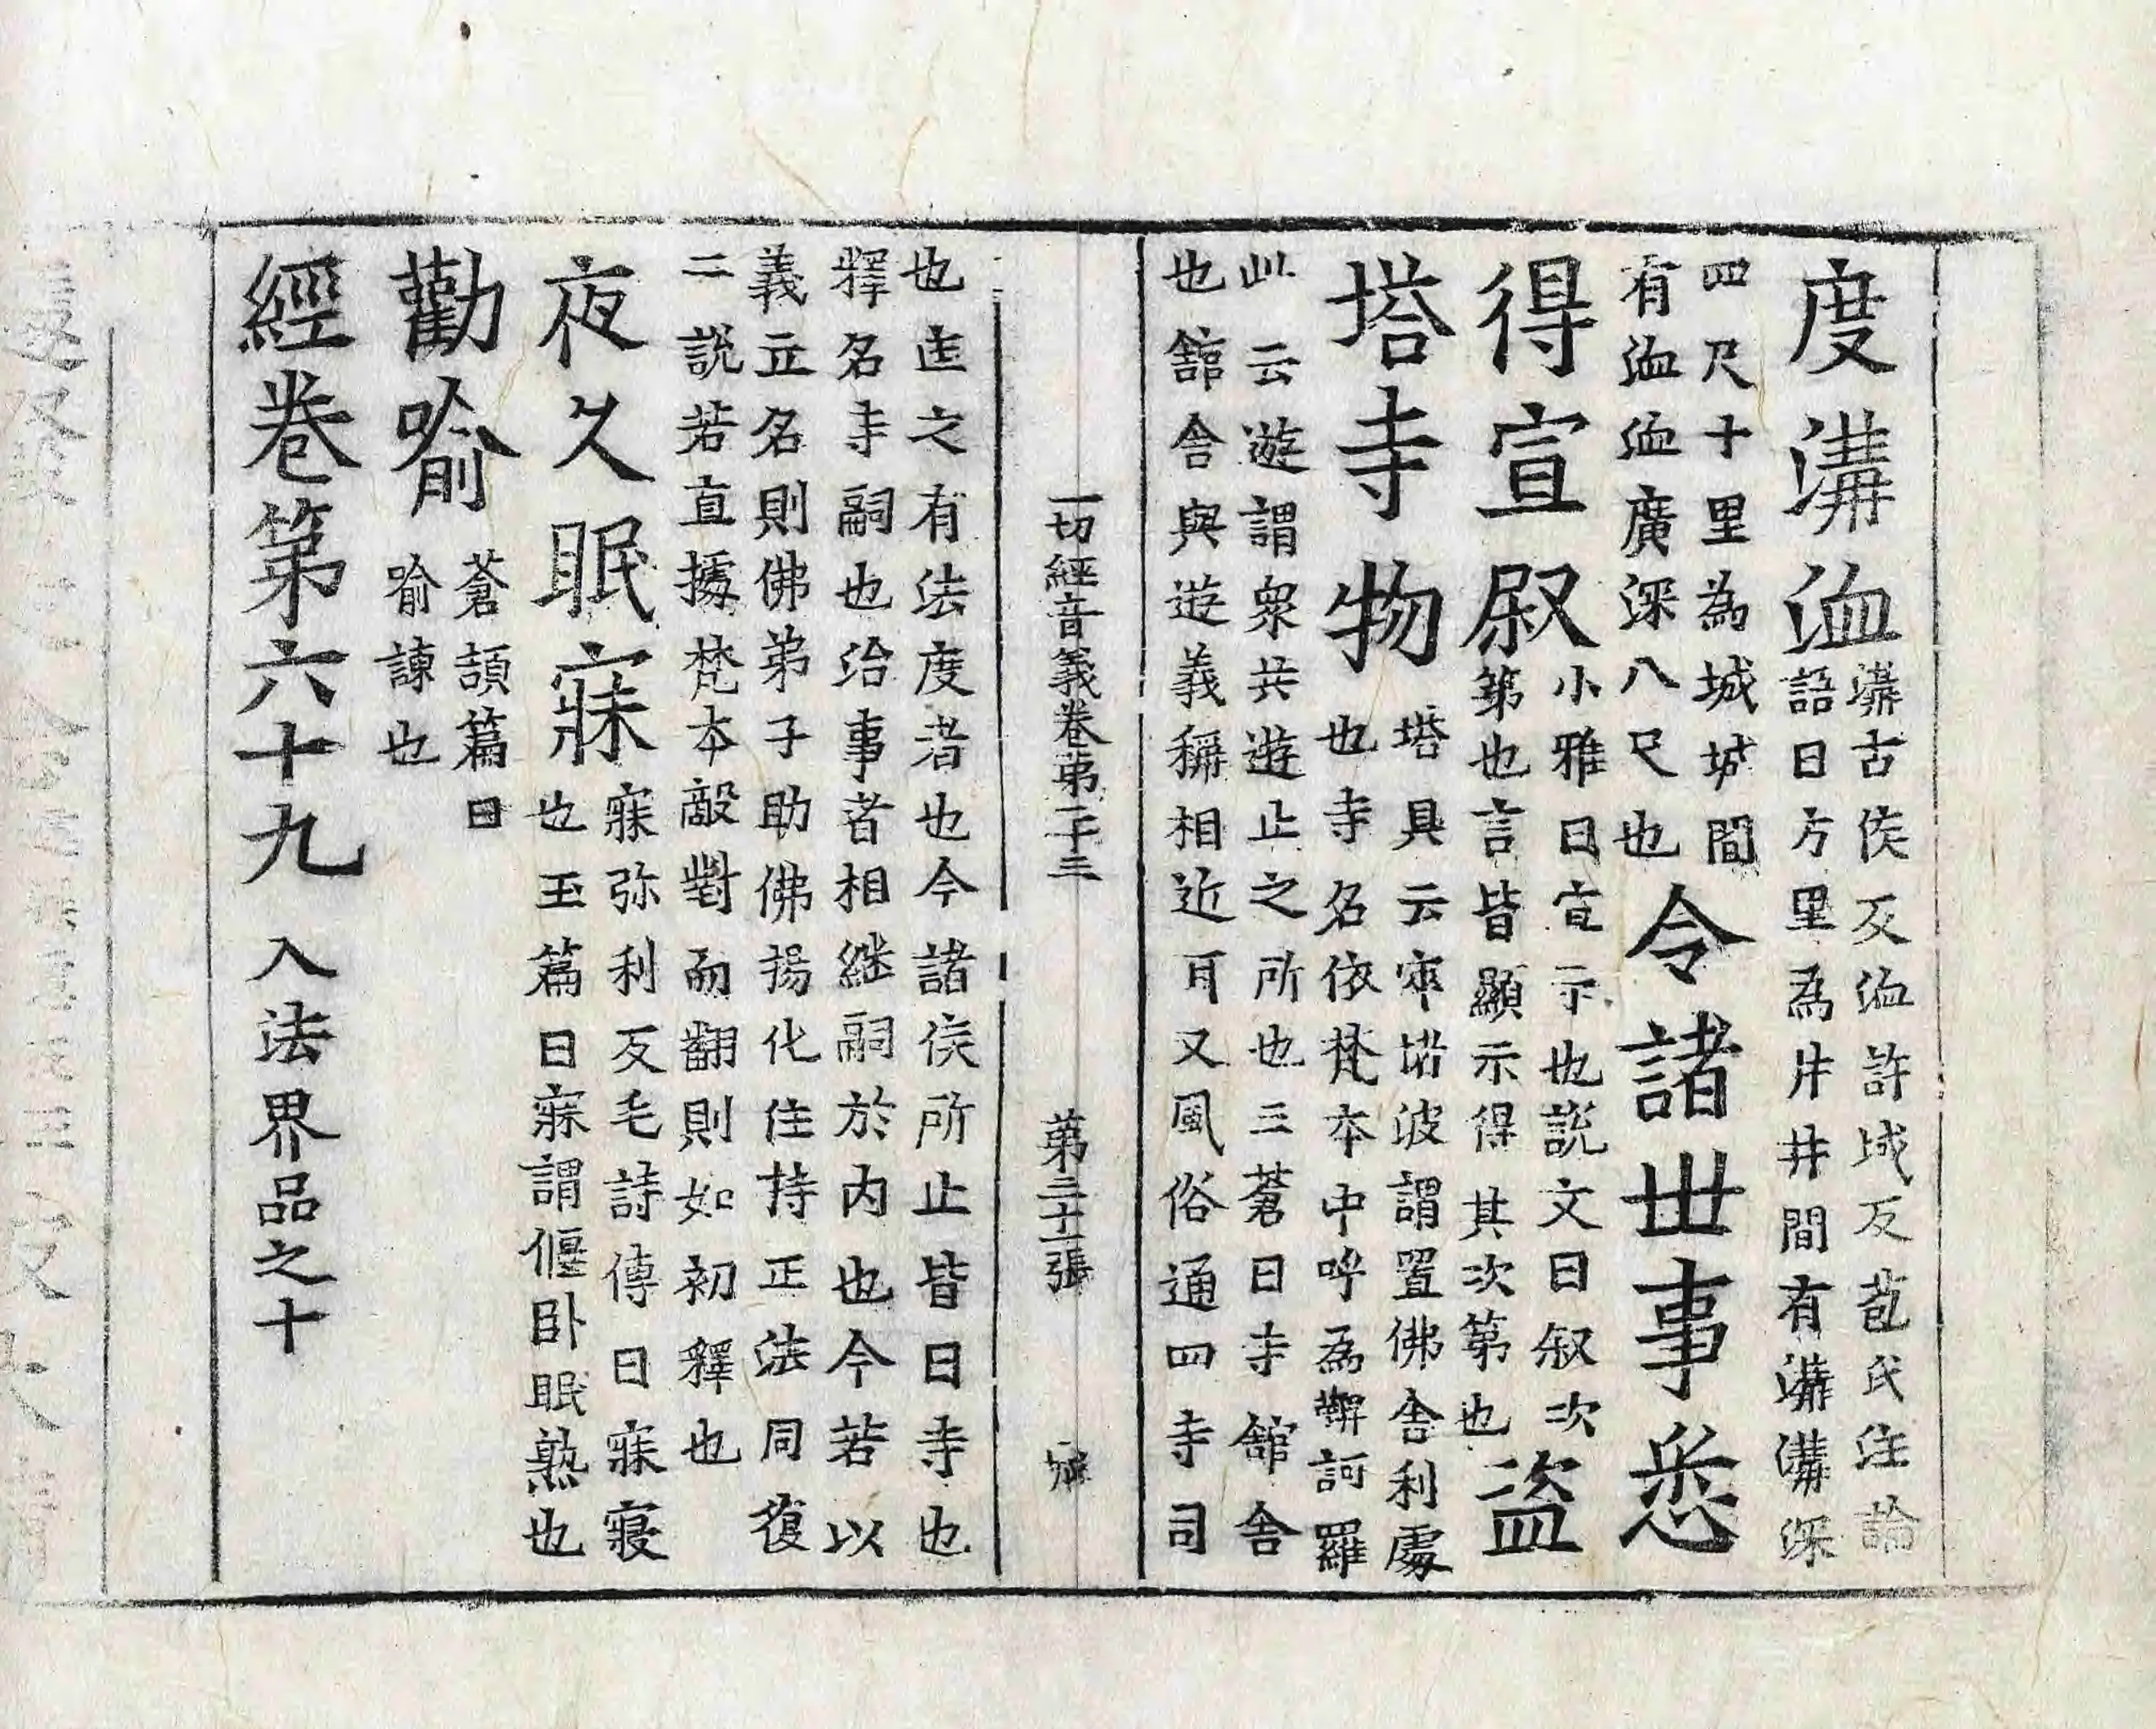 度溝洫溝古侯反洫許域反苞氏注論
語曰方里為井井間有溝溝深
四尺十里為城城間
有洫洫廣深八尺也令諸世事悉
得宣叙小雅曰宣示也說文曰叙次
第也言皆顯示得其次第也盜
塔寺物塔具云窣堵波謂置佛舍利處
也寺名依梵本中呼為鞞訶羅
此云遊謂眾共遊止之所也三蒼曰寺館舍
也館舍與遊義稱相近耳又風俗通四寺司
一切經音義卷第二十三 第二十一張
也廷之有法度者也今諸侯所止皆曰寺也
釋名寺嗣也治事者相継嗣於内也今若以
義立名則佛弟子助佛揚化住持正法同復
二說若直據梵本敵對而翻則如初釋也
夜久眠寐寐弥利反毛詩傳曰寐寢
也玉篇曰寐謂偃卧眠熟也
勸喻蒼頡篇曰
喻諫也
經卷第六十九 入法界品之十